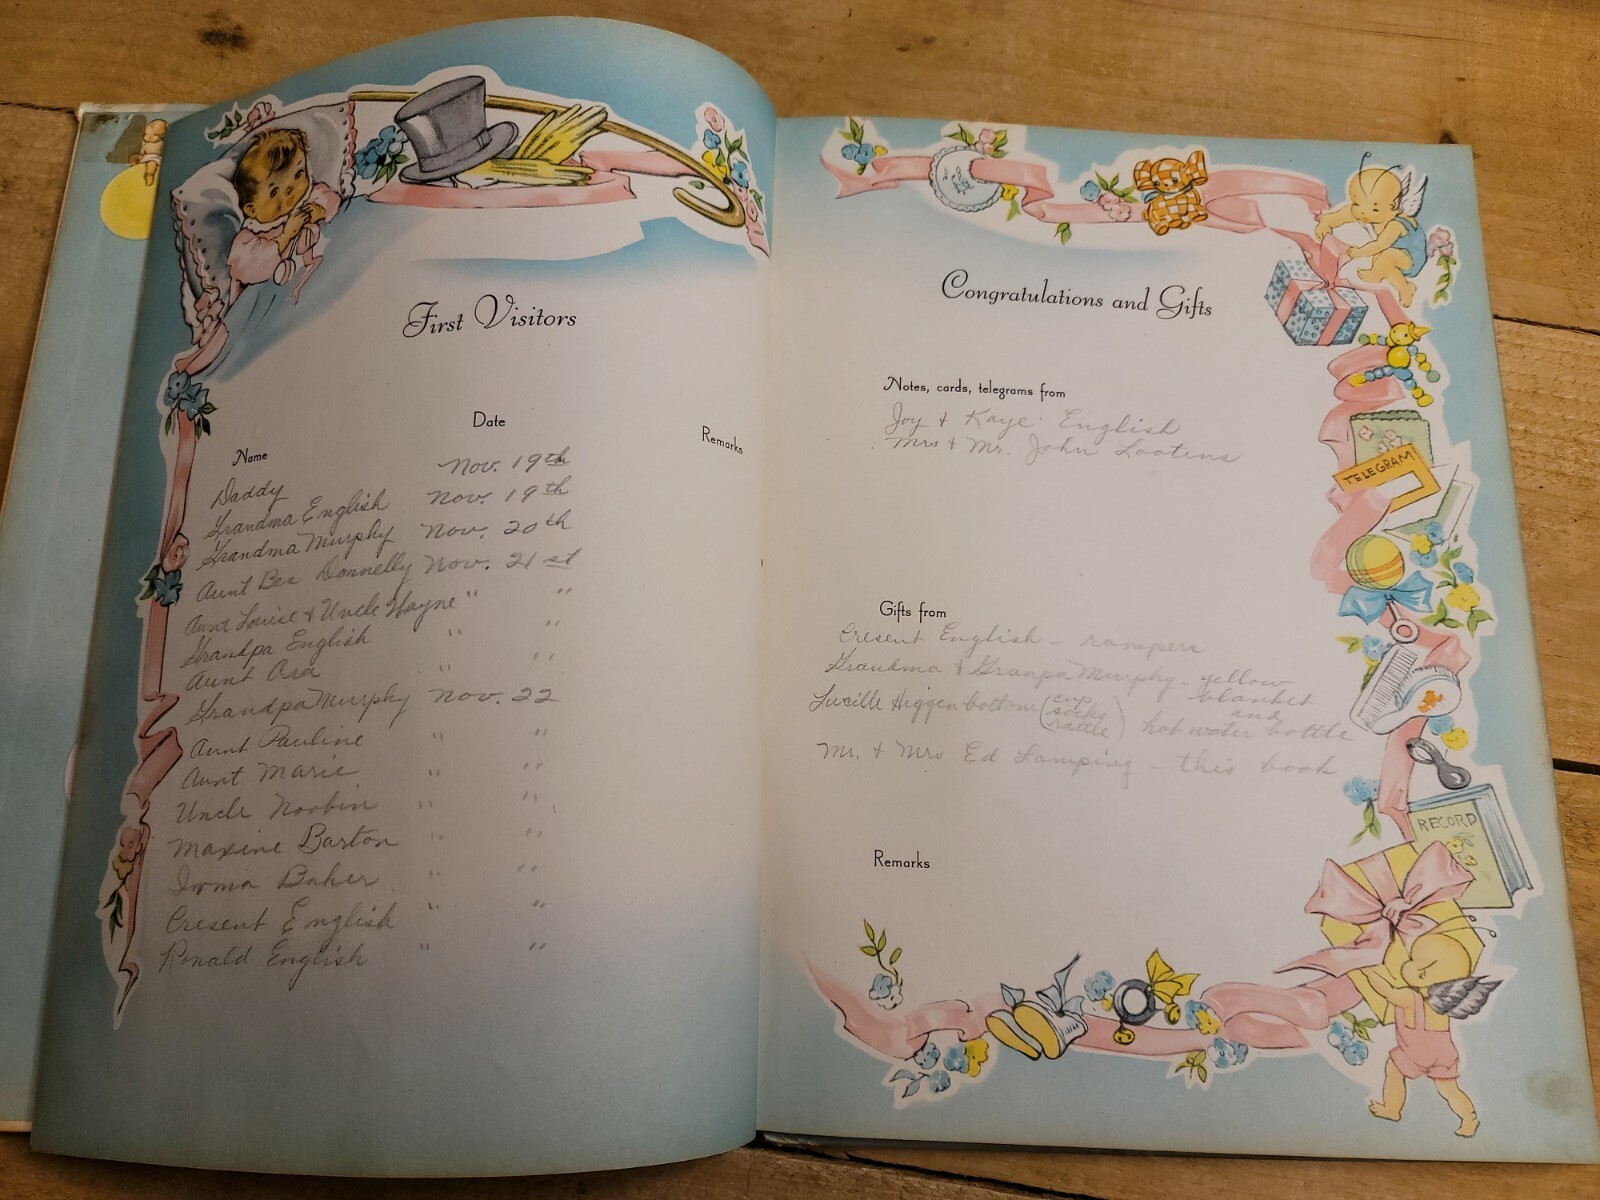 First Visitors
Name Date Remarks
Daddy Nov. 19th
Grandma English Nov. 19th
Grandma Murphy Nov. 20th
Aunt Bea Donnelly Nov. 21st
Aunt Louise & Uncle Wayne " "
Grandpa English " "
Aunt Ora " "
Grandpa Murphy Nov. 22
Aunt Pauline " "
Aunt Marie " "
Uncle Norbin " "
Maxine Barton " "
Irma Baker " "
Cresent English " "
Ronald English " "
Congratulations and Gifts
Notes, cards, telegrams from
Joy & Kaye English
Mrs & Mr. John Lootens
TELEGRAM
Gifts from
Cresent English - rompers
Grandma & Granpa Murphy - yellow blanket and hot water bottle
Lucille Higgenbottom (cup socks rattle)
Mr. & Mrs Ed Lamping - this book
RECORD
Remarks